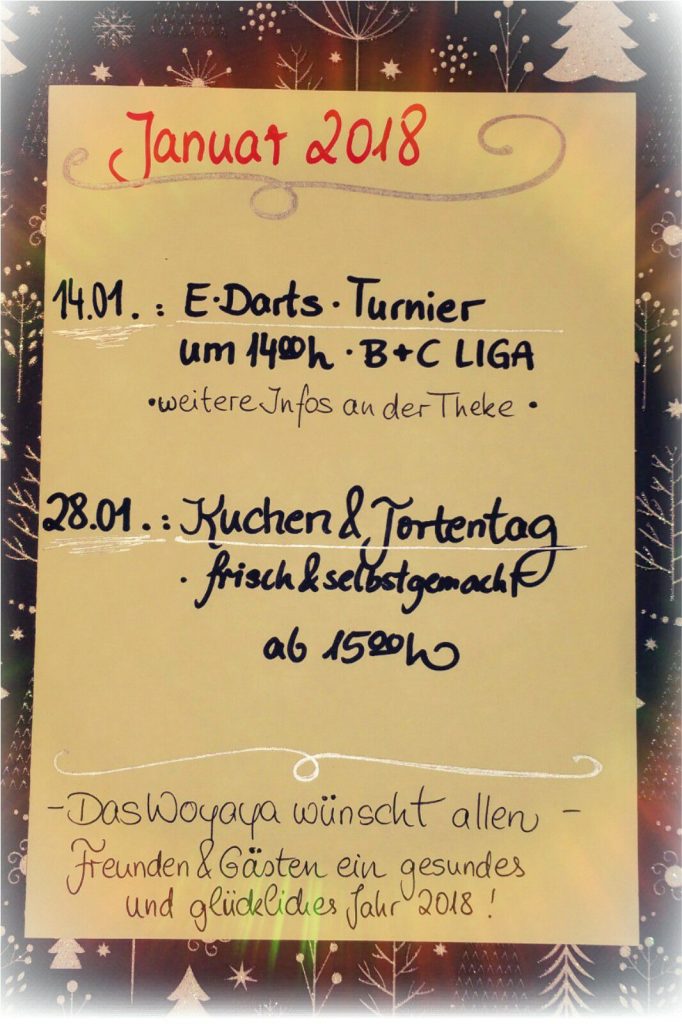 Januar 2018
14.01. : E·Darts·Turnier
um 14⁰⁰h · B+C LIGA
•weitere Infos an der Theke •
28.01. : Kuchen & Tortentag
· frisch & selbstgemacht
ab 15⁰⁰h
- Das Woyaya wünscht allen -
Freunden & Gästen ein gesundes
und glückliches Jahr 2018 !